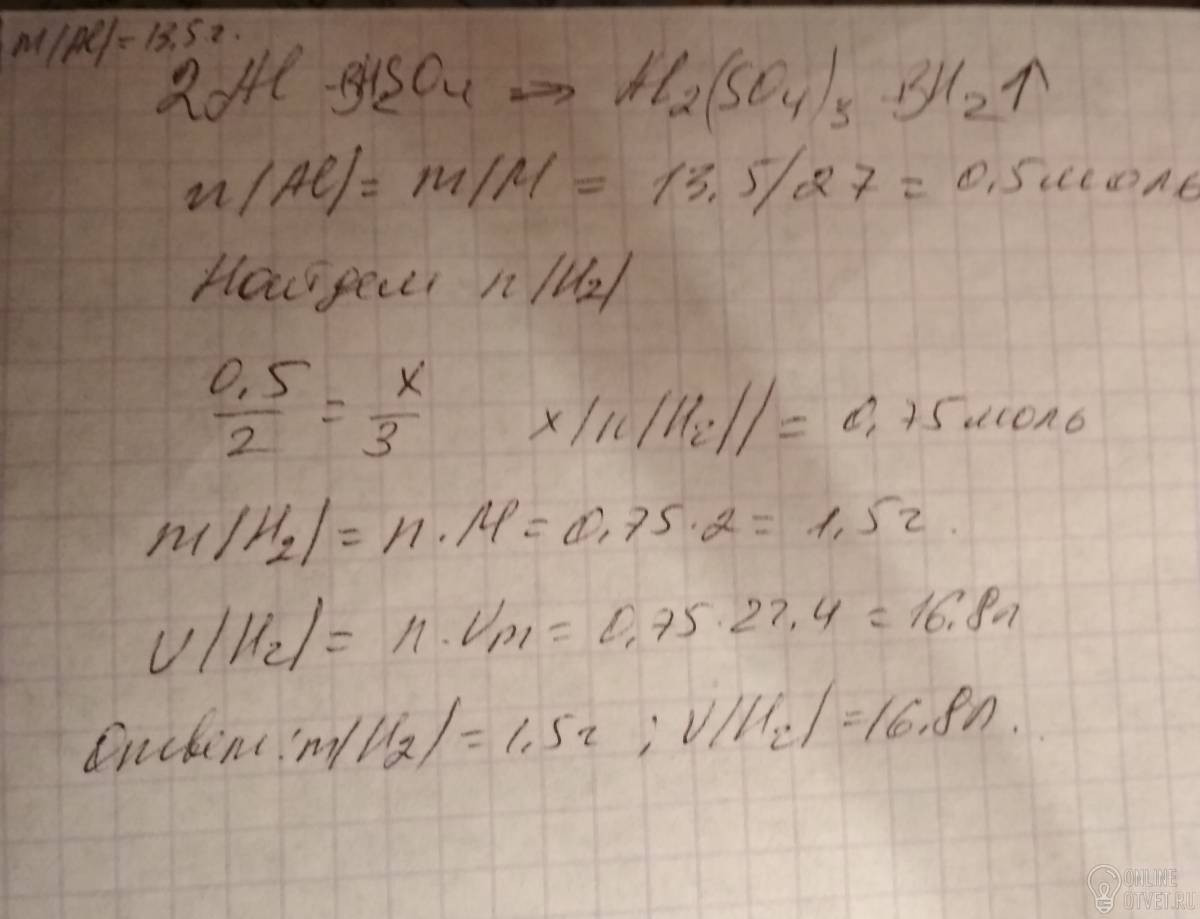 m(Al)=13,5г.
2Al + 3H₂SO₄ => Al₂(SO₄)₃ + 3H₂↑
n(Al)= m/M = 13.5/27 = 0,5моль
Найдем n(H₂)
0,5/2 = x/3 x(n(H₂))= 0,75моль
m(H₂)= n·M=0,75·2= 1,5г.
V(H₂)= n·Vm= 0,75·22,4 =16.8л
Ответ: m(H₂)=1,5г ; V(H₂)=16.8л.
ONLINE
OTVET.RU